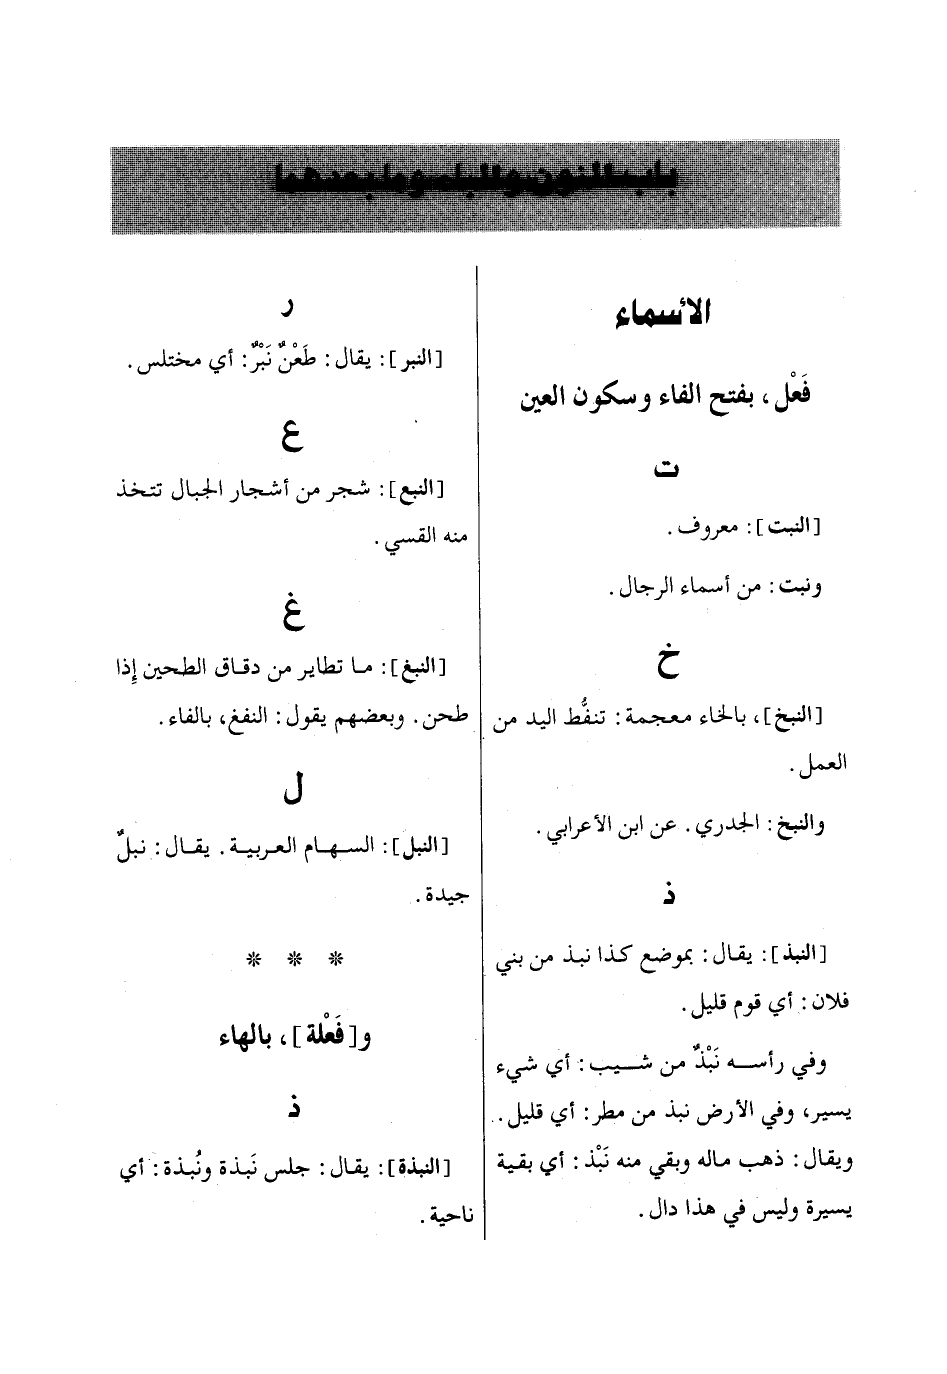 باب النون والباء وما بعدهما
الأسماء
فَعْل، بفتح الفاء وسكون العين
ت
[النبت]: معروف.
ونبت: من أسماء الرجال.
خ
[النبخ]، بالخاء معجمة: تنفُّط اليد من
العمل.
والنبخ: الجدري. عن ابن الأعرابي.
ذ
[النبذ]: يقال: بموضع كذا نبذ من بني
فلان: أي قوم قليل.
وفي رأسه نَبْذٌ من شيب: أي شيء
يسير، وفي الأرض نبذ من مطر: أي قليل.
ويقال: ذهب ماله وبقي منه نَبْذ: أي بقية
يسيرة وليس في هذا دال.
ر
[النبر]: يقال: طَعْنٌ نَبْرٌ: أي مختلس.
ع
[النبع]: شجر من أشجار الجبال تتخذ
منه القسي.
غ
[النبغ]: ما تطاير من دقاق الطحين إِذا
طحن. وبعضهم يقول: النفغ، بالفاء.
ل
[النبل]: السهام العربية. يقال: نبلٌ
جيدة.
* * *
و[فَعْلة]، بالهاء
ذ
[النبذة]: يقال: جلس نَبذة ونُبذة: أي
ناحية.